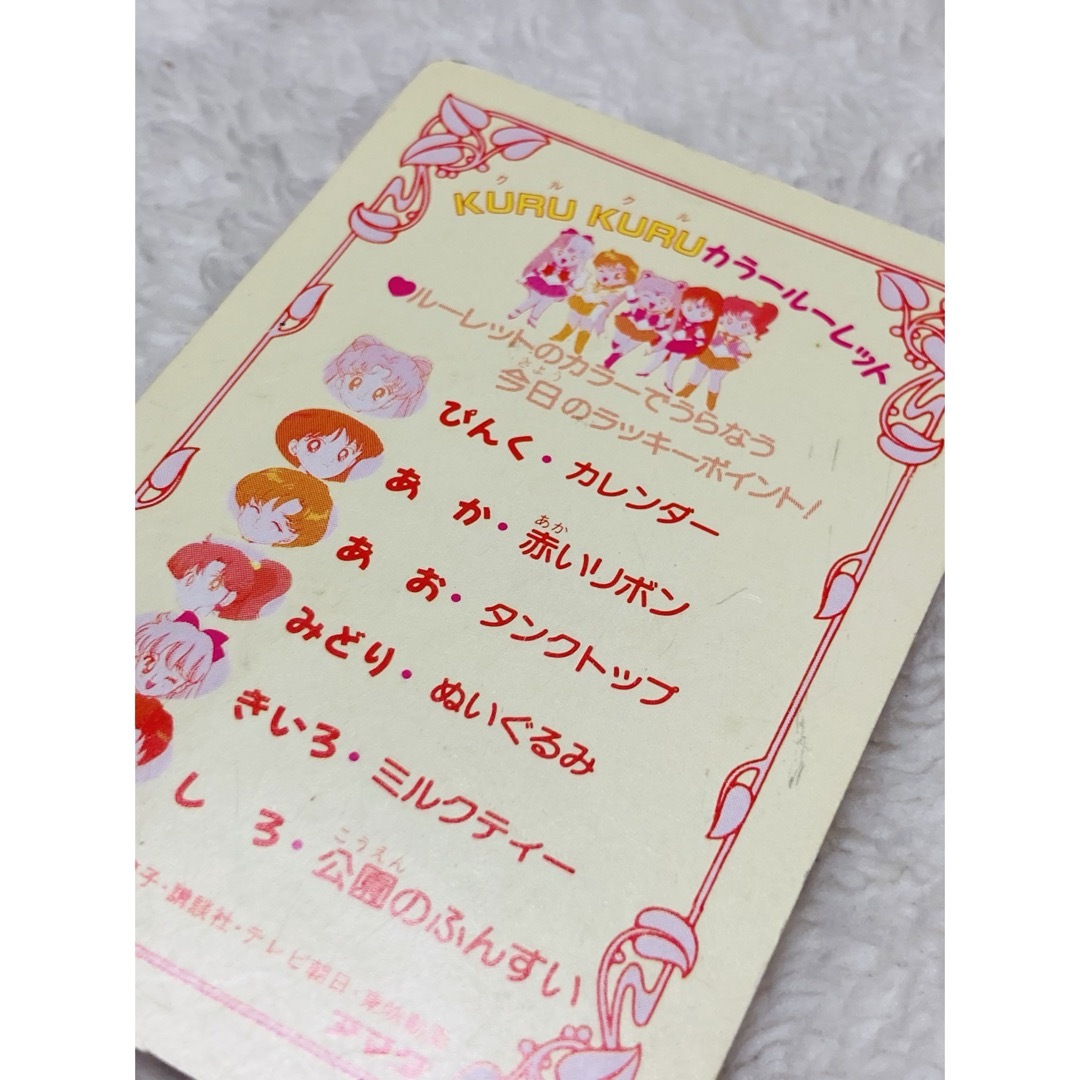 クル クル
KURU KURUカラールーレット
♥ルーレットのカラーでうらなう
きょう
今日のラッキーポイント!
ぴんく・カレンダー
あか
あ か・赤いリボン
あ お・タンクトップ
みどり・ぬいぐるみ
きいろ・ミルクティー
こうえん
し ろ・公園のふんすい
子・講談社・テレビ朝日・東映動画
アマダ